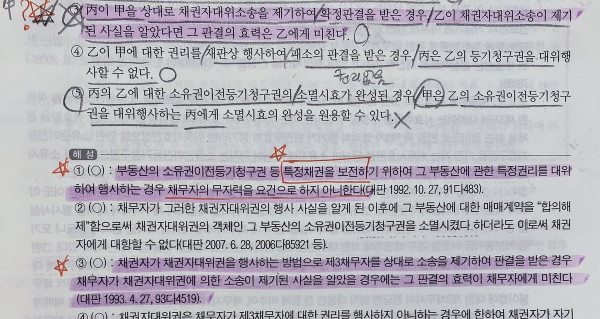 ③ 丙이 甲을 상대로 채권자대위소송을 제기하여 확정판결을 받은 경우, 乙이 채권자대위소송이 제기
된 사실을 알았다면 그 판결의 효력은 乙에게 미친다.
④ 乙이 甲에 대한 권리를 재판상 행사하여 패소의 판결을 받은 경우, 丙은 乙의 등기청구권을 대위행
사할 수 없다.
⑤ 丙의 乙에 대한 소유권이전등기청구권의 소멸시효가 완성된 경우, 甲은 乙의 소유권이전등기청구
권을 대위행사하는 丙에게 소멸시효의 완성을 원용할 수 있다.
해설
① (○) : 부동산의 소유권이전등기청구권 등 특정채권을 보전하기 위하여 그 부동산에 관한 특정권리를 대위
하여 행사하는 경우 채무자의 무자력을 요건으로 하지 아니한다(대판 1992. 10. 27, 91다483).
② (○) : 채무자가 그러한 채권자대위권의 행사 사실을 알게 된 이후에 그 부동산에 대한 매매계약을 "합의해
제"함으로써 채권자대위권의 객체인 그 부동산의 소유권이전등기청구권을 소멸시켰다 하더라도 이로써 채권
자에게 대항할 수 없다(대판 2007. 6. 28, 2006다85921 등).
③ (○) : 채권자가 채권자대위권을 행사하는 방법으로 제3채무자를 상대로 소송을 제기하여 판결을 받은 경우
채무자가 채권자대위권에 의한 소송이 제기된 사실을 알았을 경우에는 그 판결의 효력이 채무자에게 미친다
(대판 1993. 4. 27, 93다4519).
④ (○) : 채권자대위권은 채무자가 제3채무자에 대한 권리를 행사하지 아니하는 경우에 한하여 채권자가 자기